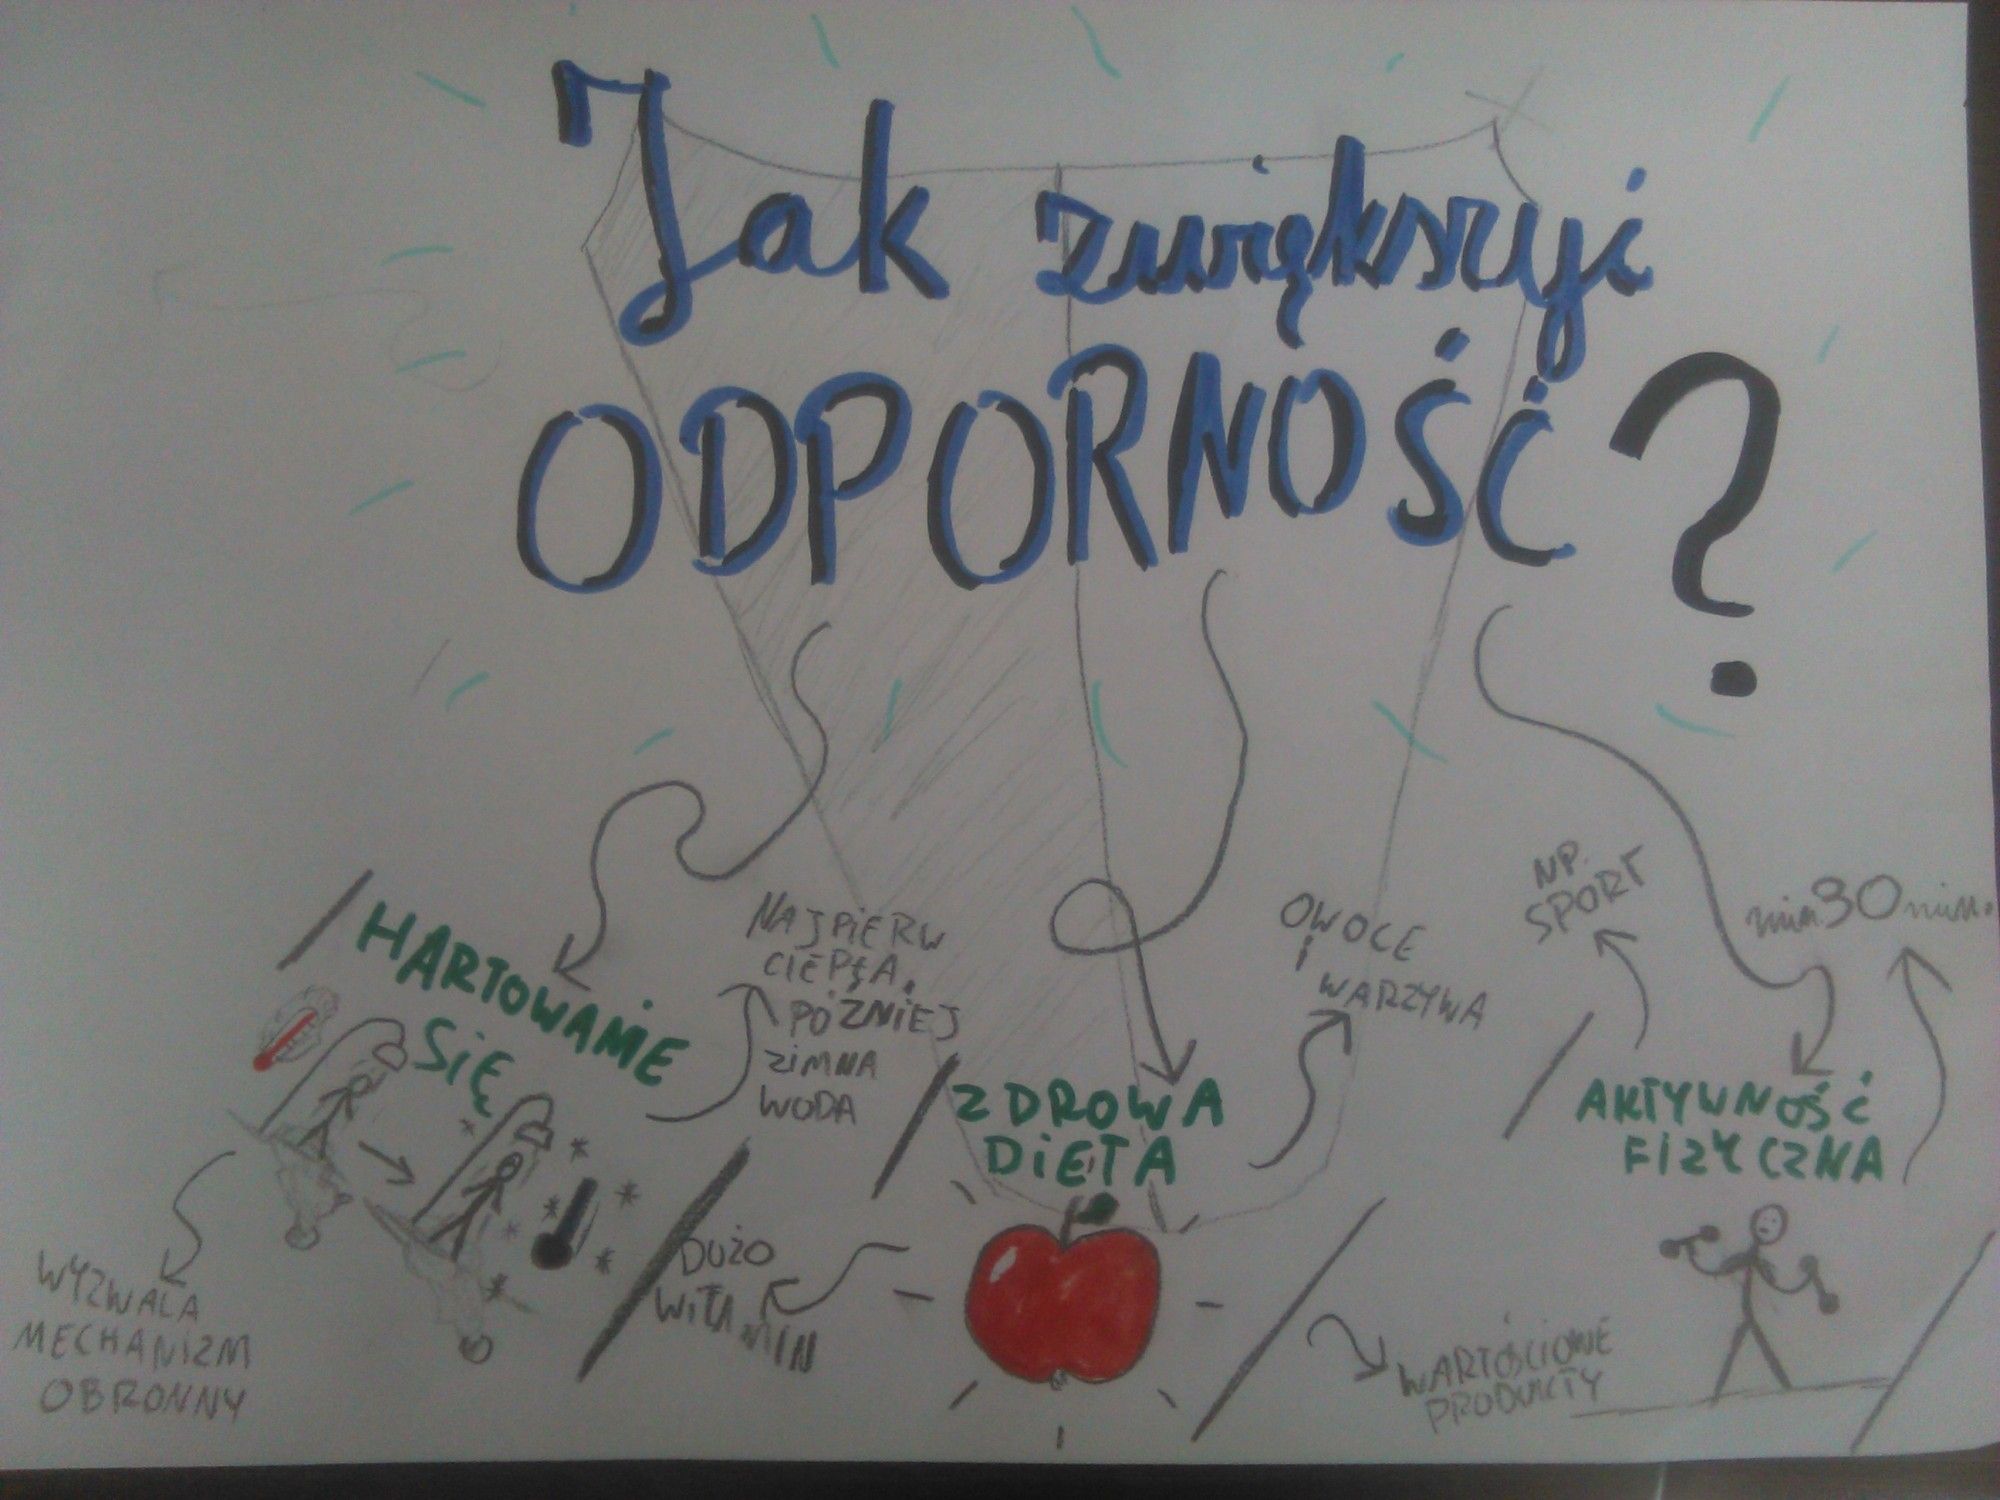 Jak zwiększyć
ODPORNOŚĆ?
HARTOWANIE
SIĘ
NAJPIERW
CIEPŁA,
PÓŹNIEJ
ZIMNA
WODA
WYZWALA
MECHANIZM
OBRONNY
ZDROWA
DIETA
OWOCE
I
WARZYWA
DUŻO
WITAMIN
WARTOŚCIOWE
PRODUKTY
AKTYWNOŚĆ
FIZYCZNA
NP.
SPORT
min. 30 min.